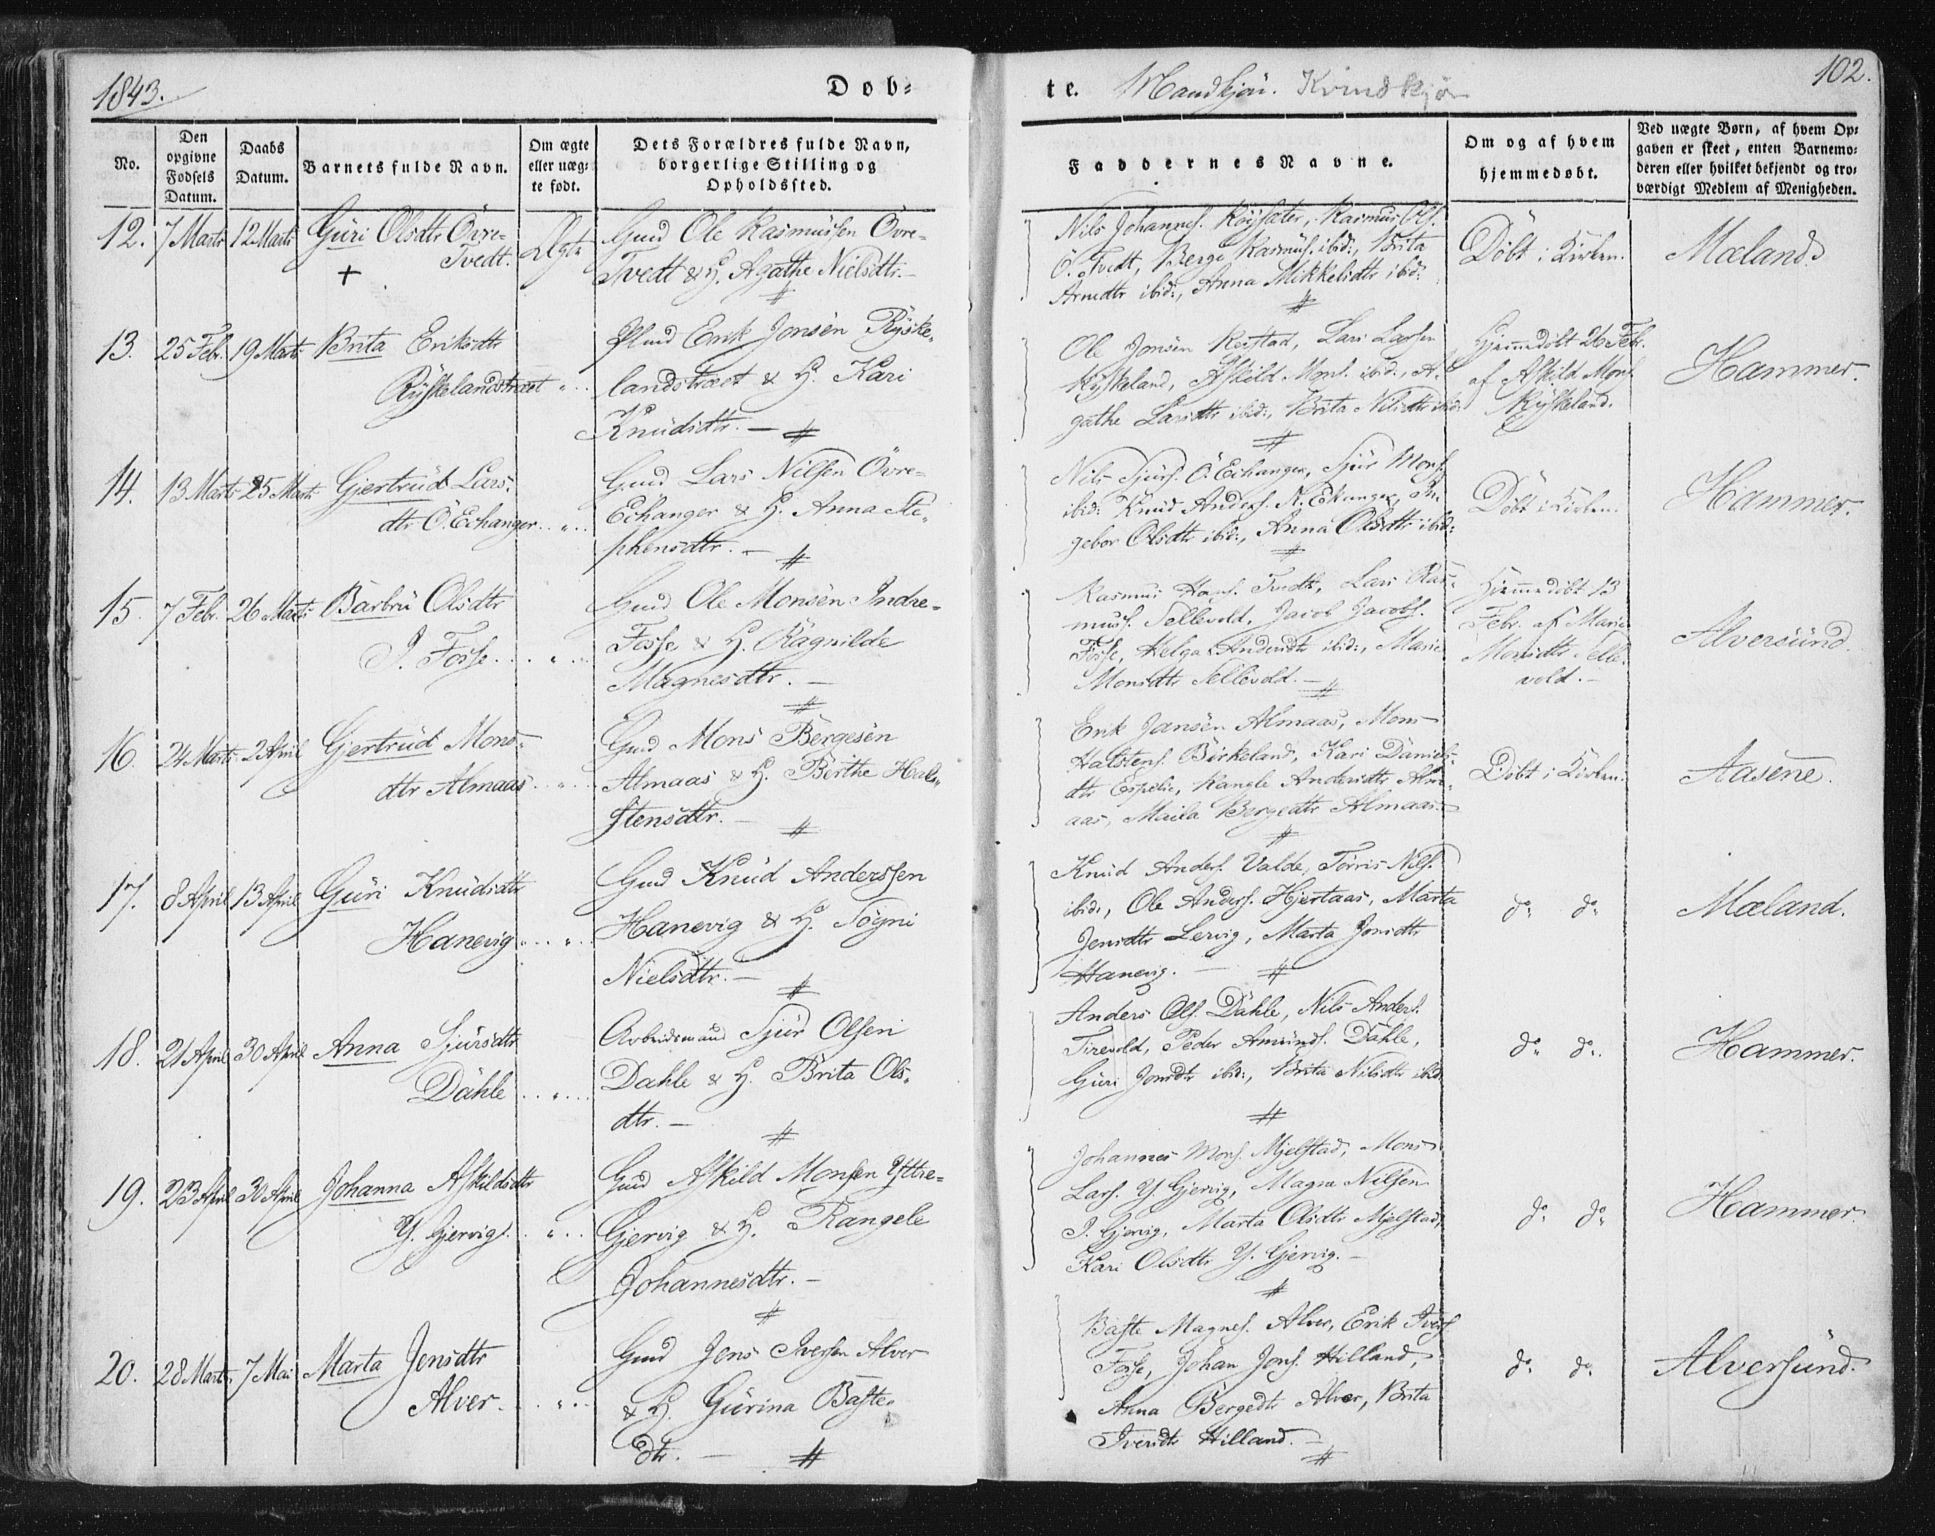 1843.
Døb-
te. Mandkjøn. Kvindkjøn
102.
No.
Den opgivne Fødsels Datum.
Daabs Datum.
Barnets fulde Navn.
Om ægte eller uægte født.
Dets Forældres fulde Navn, borgerlige Stilling og Opholdssted.
Faddernes Navne.
Om og af hvem hjemmedøbt.
Ved uægte Børn, af hvem Opgaven er skeet, enten Barnemoderen eller hvilket bekjendt og troværdigt Medlem af Menigheden.
12. 7 Marts 12 Marts Guri Olsdtr Øvre-
Tvedt. Ægte
+
Gmd Ole Rasmussen Øvre-
Tvedt & H. Agathe Nielsdtr. —
Nils Johannes. Røysæter, Rasmus Ols.
Ö. Tvedt, Berge Rasmus. ibid:, Brita
Arnedtr ibid:, Anna Mikkelsdtr ibid:
Döbt i Kirken.
Mæland.
13. 25 Feb. 19 Marts Brita Eriksdtr
Ryskelandstræet
Plmd Erik Jonsen Ryske-
landstræet & H. Kari
Knudsdtr. —
Ole Jonsen Restad, Lars Larsen
Ryskeland, Askild Mons. ibid:, A-
gathe Larsdtr ibid:, Brita Nilsdtr ibid:
Hjemmedöbt 26 Febr.
af Askild Mons.
Ryskeland.
Hammer.
14. 13 Marts 25 Marts Gjertrud Lars-
dtr Ö. Echanger
Gmd Lars Nilsen Övre-
Echanger & H. Anna Ste-
phensdtr. —
Nils Sjurs. Ö. Echanger, Sjur Mons.
ibid: Knud Anders. N. Echanger, In-
gebor Olsdtr ibid:, Anna Olsdtr ibid:
Döbt i Kirken.
Hammer.
15. 7 Febr. 26 Marts Barbru Olsdtr
I. Fosse
Gmd Ole Monsen Indre-
Fosse & H. Ragnilde
Magnesdtr. —
Rasmus Hans. Tvedt, Lars Ras-
muss. Sellevold, Jacob Jacobs.
Fosse, Helga Andersdtr ibid:, Marie
Monsdtr Sellevold. —
Hjemmedöbt 13
Febr. af Marie
Monsdtr Selle-
vold. —
Alversund.
16. 24 Marts 2 April Gjertrud Mons-
dtr Almaas
Gmd Mons Bergesen
Almaas & H. Berthe Hal-
stensdtr. —
Erik Jansen Almaas, Mons
Halstens. Birkeland, Kari Daniels-
dtr Espelie, Rangle Andersdtr Alm-
aas, Maila Bergesdtr Almaas. —
Döbt i Kirken.
Aasene.
17. 8 April 13 April Guri Knudsdtr
Hanevig
Gmd Knud Anderssen
Hanevig & H. Søgni
Nielsdtr. —
Knud Anders. Valde, Torris Nils.
ibid:, Ole Anders. Hjertaas, Marta
Jensdtr Lervig, Marta Jonsdtr
Hanevig. —
do do
Mæland.
18. 21 April 30 April Anna Sjursdtr
Dahle
Arbeidsmand Sjur Olsen
Dahle & H. Brita Ols-
dtr. —
Anders Ols. Dahle, Nils Anders.
Tirevold, Peder Amunds. Dahle,
Guri Jonsdtr ibid:, Brita Nilsdtr ibid:
do do.
Hammer.
19. 23 April 30 April Johanna Askildsdtr
Y. Gjervig
Gmd Askild Monsen Yttre-
Gjervig & H. Rangele
Johannesdtr. —
Johannes Mons. Mjelstad, Mons
Lars. Y. Gjervig, Magne Nilsen
I. Gjervig, Marta Olsdtr Mjelstad,
Kari Olsdtr Y. Gjervig. —
do do
Hammer.
20. 28 Marts 7 Mai Marta Jensdtr
Alver
Gmd Jens Iversen Alver
& H. Gurina Baste-
dtr. —
Baste Magnes. Alver, Erik Ivers.
Fosse, Johan Jons. Hilland,
Anna Bergedtr Alver, Brita
Iversdtr Hilland. —
do do.
Alversund.